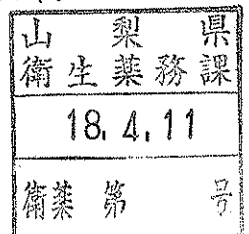 山梨県
衛生薬務課
18.4.11
衛薬第 号